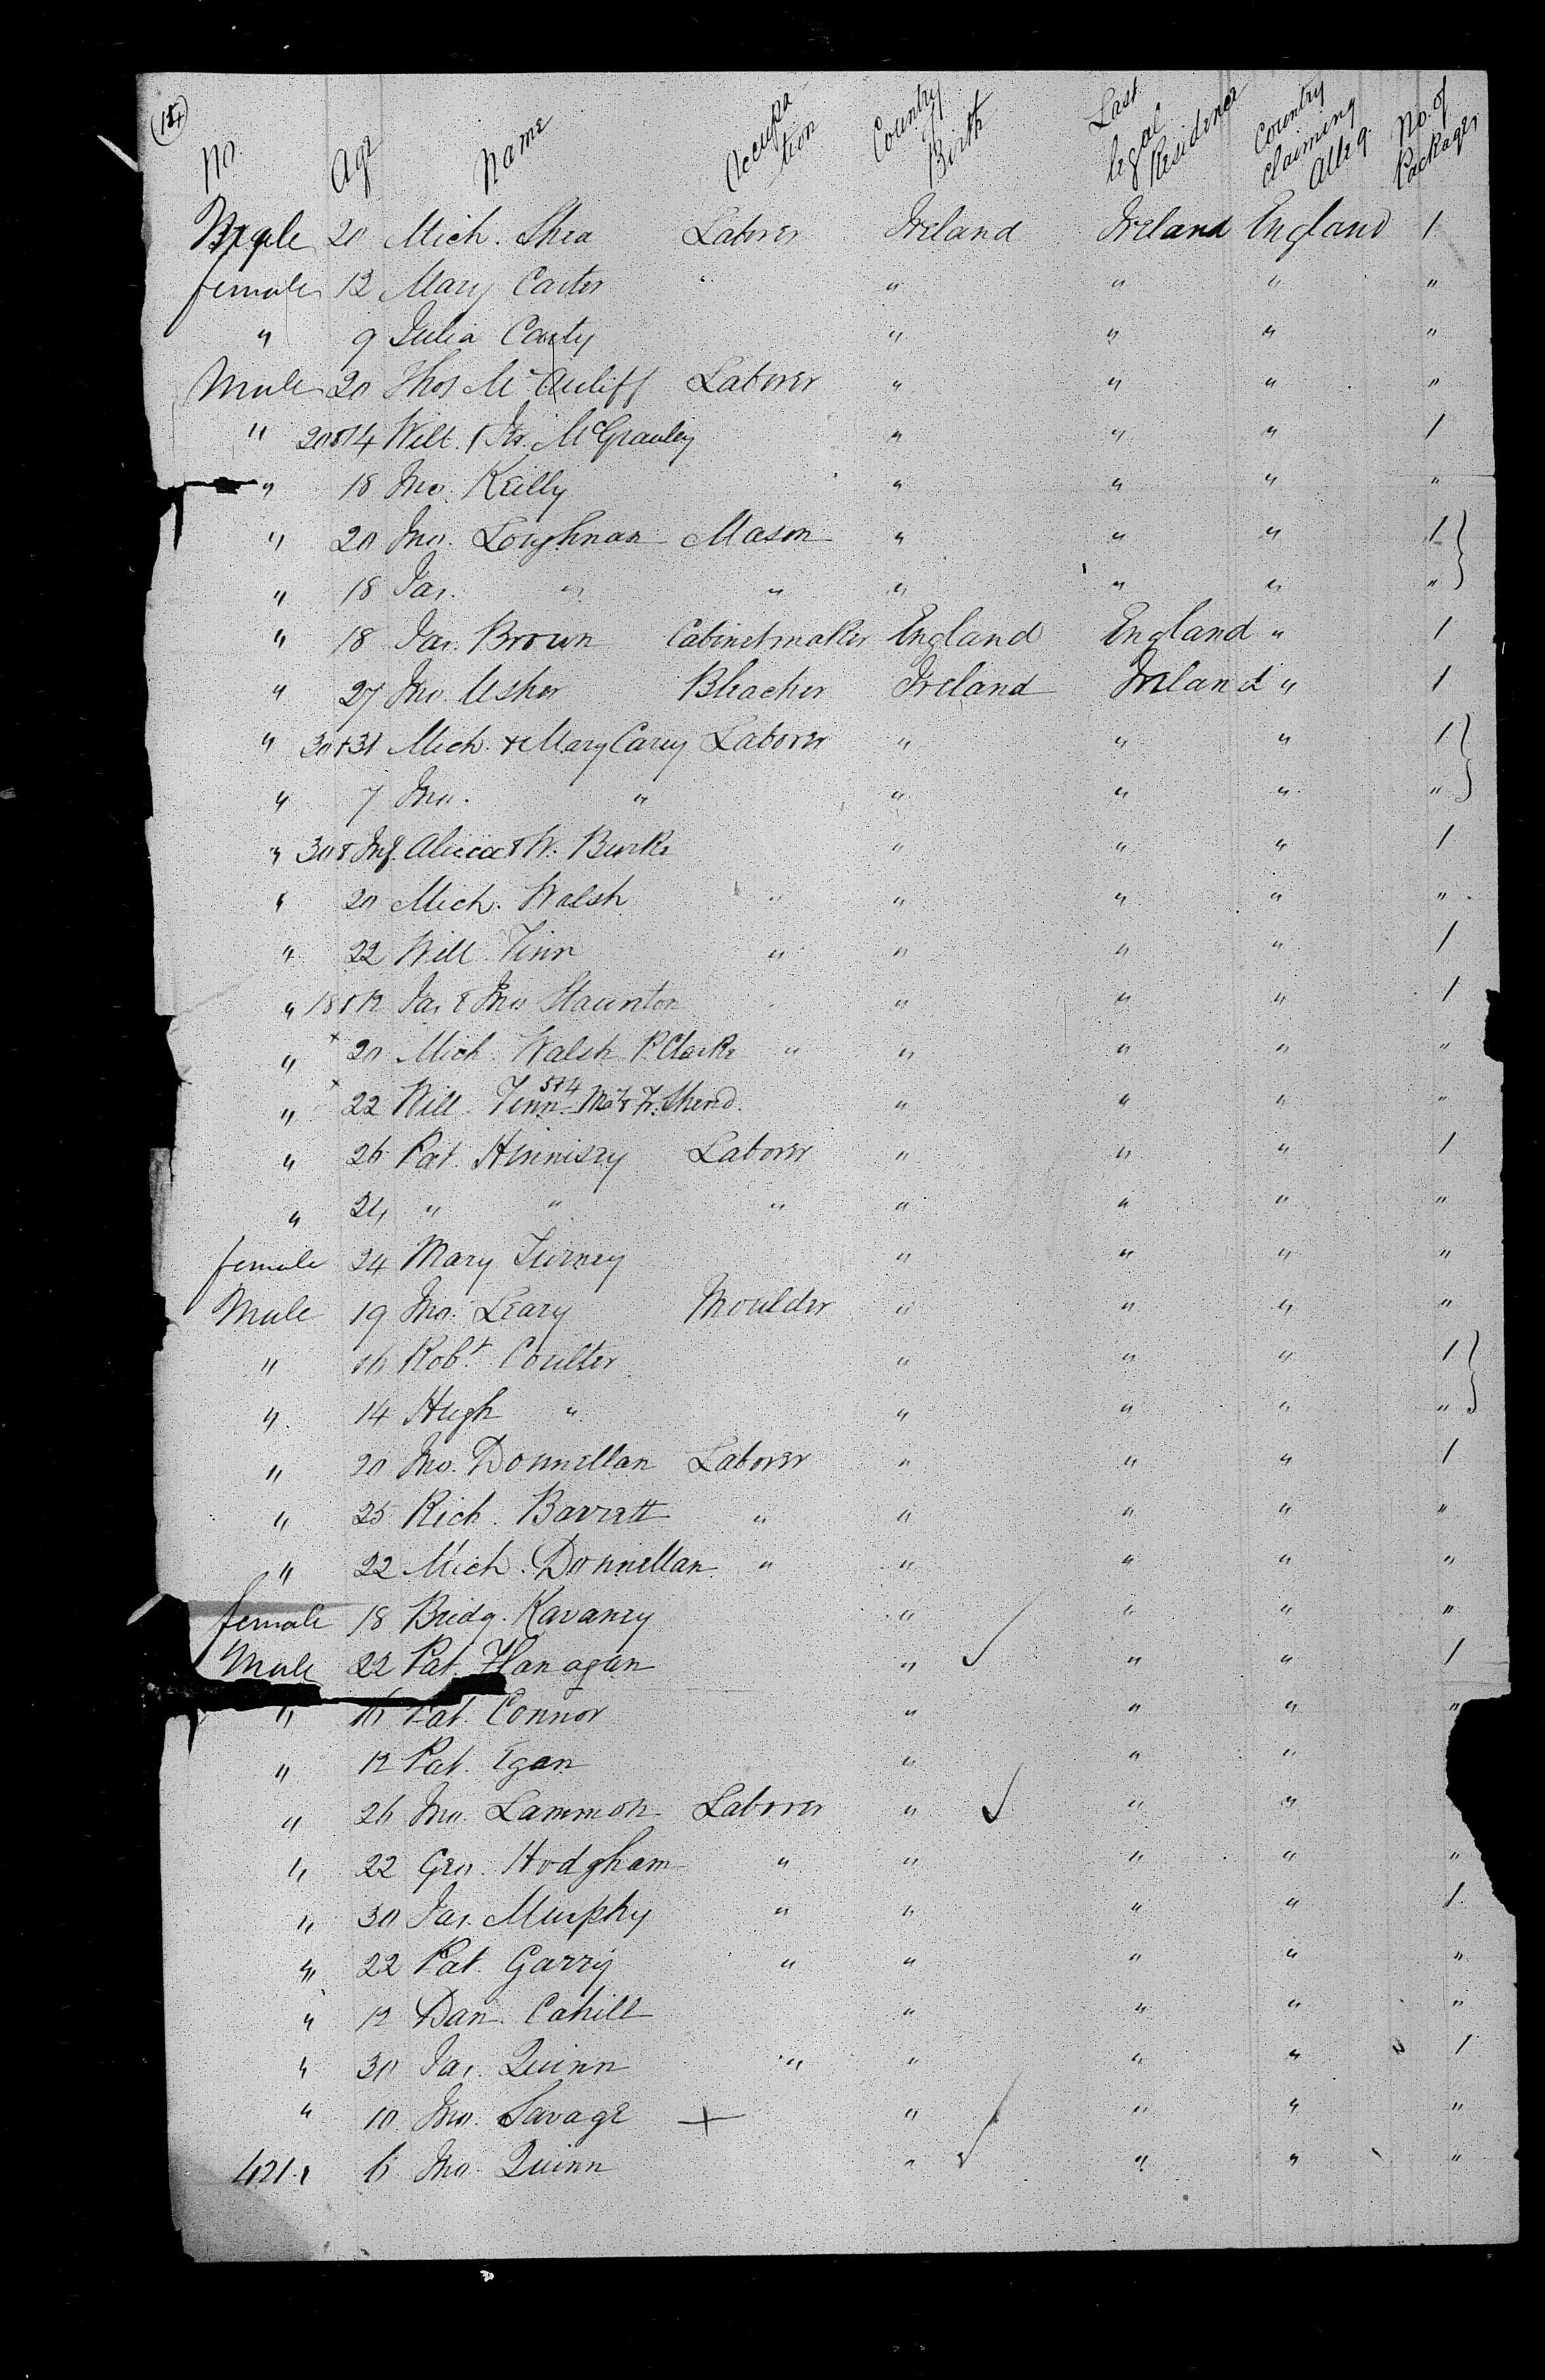 No. Age Name Occupation Country of Birth Last legal Residence Country claiming Alleg. No. of Packages
Male 20 Mich. Shea Laborer Ireland Ireland England 1
female 12 Mary Carter " " " "
" 9 Julia Carty " " " "
Male 20 Thos McAuliff Laborer " " " "
" 20 & 14 Will. & McGrauley " " " 1
" 18 Jno. Keilly " " " "
" 20 Jno. Loughnan Mason " " " 1
" 18 Jas. " " " " " "
" 18 Jas. Brown Cabinetmaker England England " 1
" 27 Jno. Usher Bleacher Ireland Ireland " 1
" 30 + 31 Mich. + Mary Carey Laborer " " " 1
" 7 Jno. " " " " "
" 30 & Inf. Alicia & W. Burke " " " 1
" 20 Mich. Walsh " " " " "
" 22 Will Finn " " " " 1
" 18 & 12 Jas & Jno Staunton " " " 1
" × 20 Mich. Walsh P. Clarke " " " " "
" × 22 Will. Finn " " " "
" 26 Pat. Hennisey Laborer " " " 1
" 24 " " " " " " "
female 24 Mary Tierney " " " "
Male 19 Jno. Leary Moulder " " " "
" 16 Robt. Coulter " " " 1
" 14 Hugh " " " " "
" 20 Jno. Donnellan Laborer " " " 1
" 25 Rich. Barrett " " " " "
" 22 Mich. Donnellan " " " " "
female 18 Bridg. Kavaney " " " "
Male 22 Pat. Flanagan " " " 1
" 16 Pat. Connor " " " "
" 12 Pat. Egan " " "
" 26 Jno. Lammon Laborer " " "
" 22 Geo. Hodgham " " " " "
" 30 Jas. Murphy " " " " 1
" 22 Pat. Garry " " " " "
" 12 Dan. Cahill " " " "
" 30 Jas. Quinn " " " " 1
" 10 Jno. Savage + " " " "
421. 6 Jno. Quinn " " " "